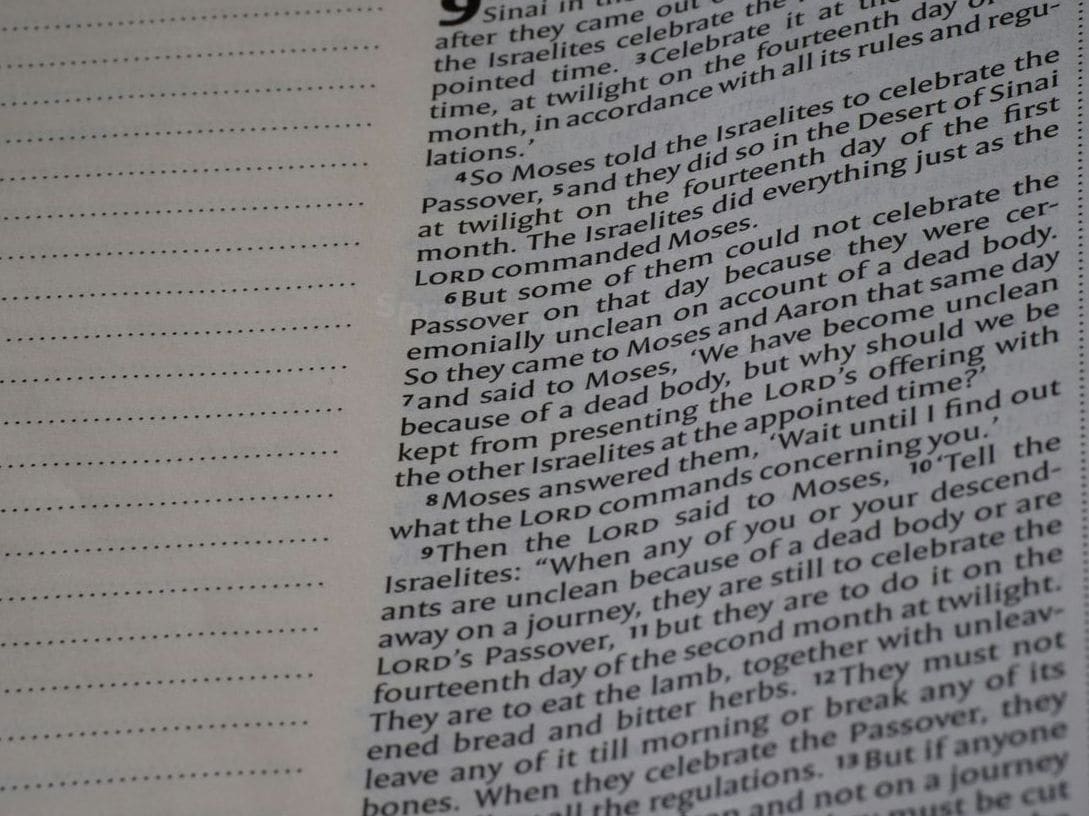 9 Sinai in
after they came out
the Israelites celebrate the
pointed time. 3Celebrate it at
time, at twilight on the fourteenth day
month, in accordance with all its rules and regu-
lations.’
4So Moses told the Israelites to celebrate the
Passover, 5and they did so in the Desert of Sinai
at twilight on the fourteenth day of the first
month. The Israelites did everything just as the
LORD commanded Moses.
6But some of them could not celebrate the
Passover on that day because they were cer-
emonially unclean on account of a dead body.
So they came to Moses and Aaron that same day
7and said to Moses, ‘We have become unclean
because of a dead body, but why should we be
kept from presenting the LORD’s offering with
the other Israelites at the appointed time?’
8Moses answered them, ‘Wait until I find out
what the LORD commands concerning you.’
9Then the LORD said to Moses, 10‘Tell the
Israelites: “When any of you or your descend-
ants are unclean because of a dead body or are
away on a journey, they are still to celebrate the
LORD’s Passover, 11but they are to do it on the
fourteenth day of the second month at twilight.
They are to eat the lamb, together with unleav-
ened bread and bitter herbs. 12They must not
leave any of it till morning or break any of its
bones. When they celebrate the Passover, they
all the regulations. 13But if anyone
and not on a journey
must be cut